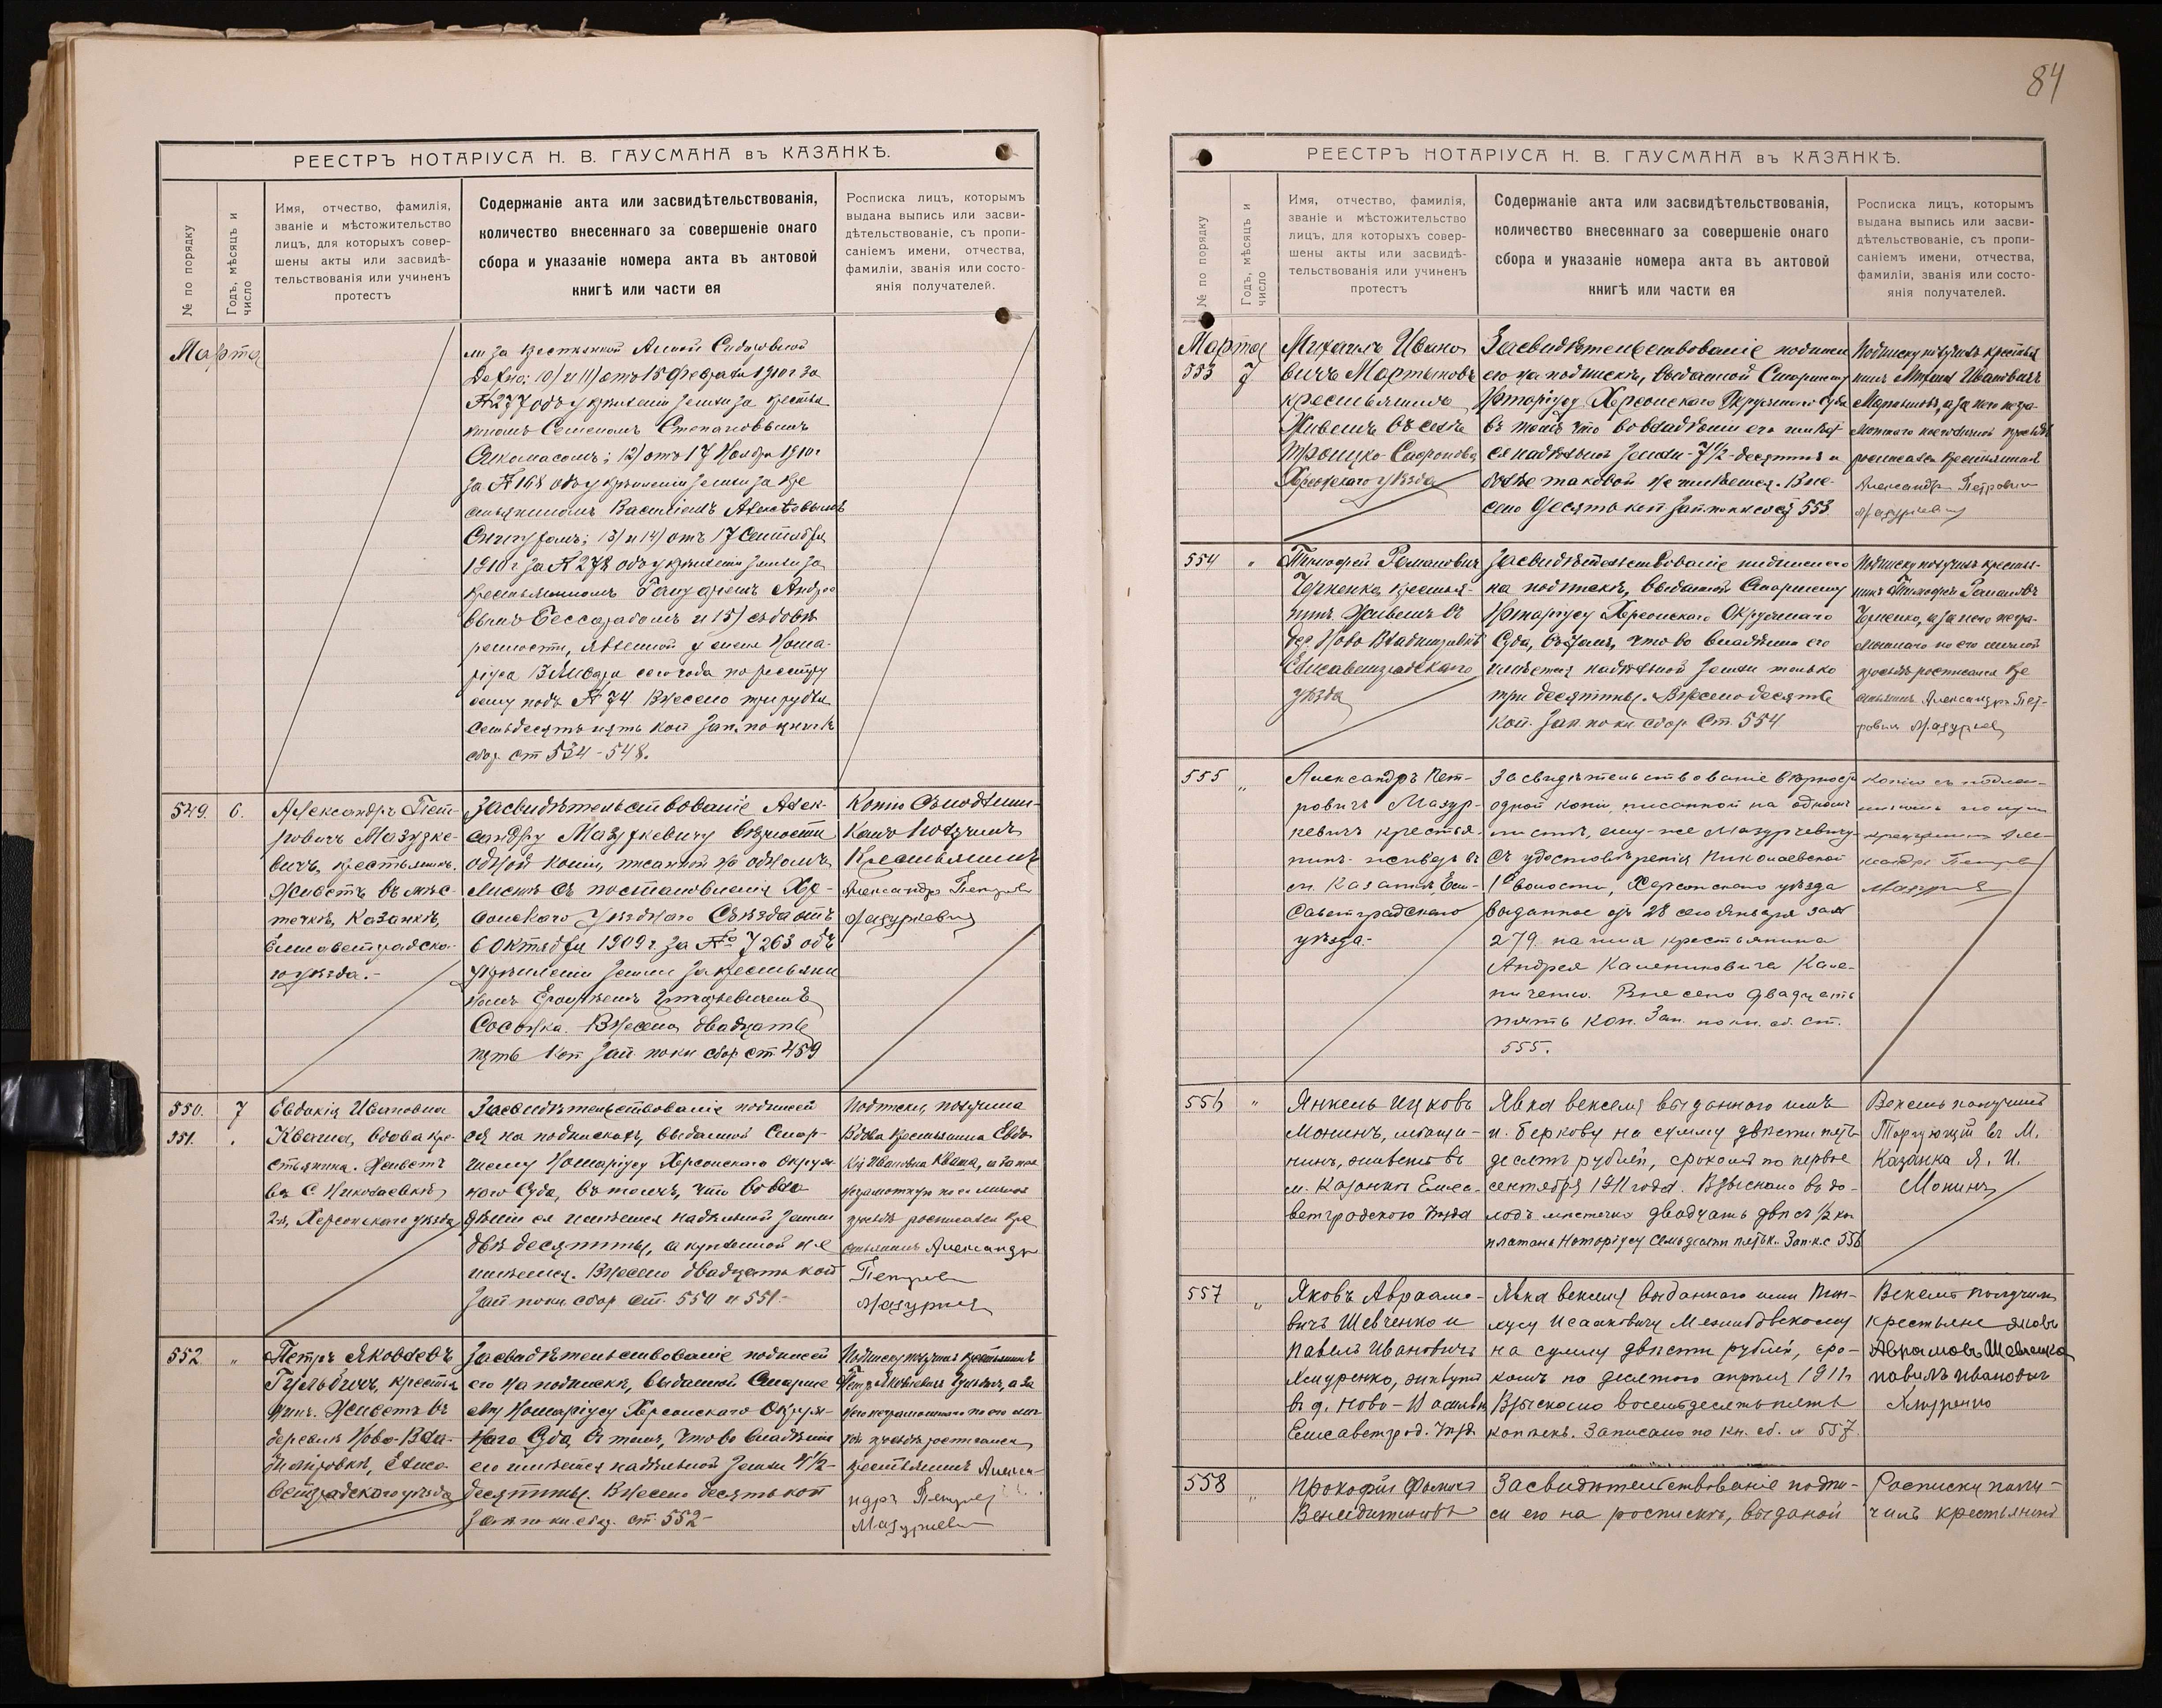 РЕЕСТРЪ НОТАРІУСА Н. В. ГАУСМАНА въ КАЗАНКѢ.
№ по порядку
Годъ, мѣсяцъ и число
Имя, отчество, фамилія,
званіе и мѣстожительство
лицъ, для которыхъ совер-
шены акты или засвидѣ-
тельствованія или учиненъ
протестъ
Содержаніе акта или засвидѣтельствованія,
количество внесеннаго за совершеніе онаго
сбора и указаніе номера акта въ актовой
книгѣ или части ея
Росписка лицъ, которымъ
выдана выпись или засви-
дѣтельствованіе, съ пропи-
саніемъ имени, отчества,
фамиліи, званія или состо-
янія получателей.
Марта
ми за Анной
10/ и 11/ отъ 15 Февраля 1910 г за
№ 277 объ укрѣпленіи земли за крестья
ниномъ Семеномъ Степановымъ
12/ отъ 17 Ноября 1910 г
за № 168 объ укрѣпленіи земли за кре
стьяниномъ Василіемъ Алексѣевымъ
13/ и 14/ отъ 17 Сентября
1910 г за № 278 объ укрѣпленіи земли за
крестьяниномъ
Бессарабомъ и 15/ съ довѣ
ренности, явленной у меня Нота-
ріуса сего года по реестру
подъ № 74 Внесено три рубля
семьдесятъ пять коп Зап. по книгѣ
сбор ст 534-548.
549. 6.
Александръ Пет-
ровичъ Мазурке-
вичъ, крестьянинъ.
Живетъ въ мѣс-
течкѣ, Казанкѣ,
Елисаветградска-
го уѣзда.-
Засвидѣтельствованіе Алек-
сандру Мазуркевичу вѣрности
одной копіи, писанной на одномъ
листѣ съ постановленія Хер-
сонскаго Уѣзднаго Съѣзда отъ
6 Октября 1909 г. за № 7263 объ
укрѣпленіи земли за крестьяни
номъ
Внесено двадцать
пять коп Зап по кн сбор ст 459
Копію съ подлин-
Получилъ
Крестьянинъ
Александръ Петров
Мазуркевич
550. 7
551.
Евдокія Ивановна
Кваша, вдова кре-
стьянина. Живетъ
въ С. Николаевкѣ
2-й, Херсонскаго уѣзда
Засвидѣтельствованіе подписей
ея на подпискахъ, выданной Стар-
шему Нотаріусу Херсонскаго Окруж-
наго Суда, въ томъ, что во вла
дѣніи ея имѣется надѣльной земли
двѣ десятины, а купленной не
имѣется. Внесено двадцать коп
Зап по кн. сбор ст. 550 и 551.-
Подписки получила
Вдова крестьянина Евдо-
кія Ивановна Кваша, а за нея
неграмотную по ея личной
просьбѣ росписался кре
стьянинъ Александръ
Петров
Мазуркев
552. "
Петръ Яковлевъ
Гульбичъ, крестья
нинъ. Живетъ въ
деревнѣ Ново-Вла-
димировкѣ, Елиса-
ветградскаго уѣзда
Засвидѣтельствованіе подписей
его на подпискѣ, выданной Старше
му Нотаріусу Херсонскаго Окруж-
наго Суда въ томъ, что во владѣніи
его имѣется надѣльной земли 4½-
десятины. Внесено десять коп
Зап по кн. сбор. ст 552-
Подписку получилъ крестьянинъ
Петръ Яковлевичъ Гульбичъ, а за
него неграмотнаго по его лич
ной просьбѣ росписался
крестьянинъ Алекса-
ндръ Петров
Мазуркев
84
РЕЕСТРЪ НОТАРІУСА Н. В. ГАУСМАНА въ КАЗАНКѢ.
№ по порядку
Годъ, мѣсяцъ и число
Имя, отчество, фамилія,
званіе и мѣстожительство
лицъ, для которыхъ совер-
шены акты или засвидѣ-
тельствованія или учиненъ
протестъ
Содержаніе акта или засвидѣтельствованія,
количество внесеннаго за совершеніе онаго
сбора и указаніе номера акта въ актовой
книгѣ или части ея
Росписка лицъ, которымъ
выдана выпись или засви-
дѣтельствованіе, съ пропи-
саніемъ имени, отчества,
фамиліи, званія или состо-
янія получателей.
Марта
553 7
Михаилъ Ивано
вичъ Мартыновъ
крестьянинъ
Живетъ въ селѣ
Троицко-Сафонова
Херсонскаго уѣзда
Засвидѣтельствованіе подписи
его на подпискѣ, выданной Старшему
Нотаріусу Херсонскаго Окружнаго Суда
въ томъ что во владѣніи его имѣет-
ся надѣльной земли-7½-десятинъ и
болѣе таковой не имѣется. Вне-
сено Десять коп Зап. по кн сб ст 553
Подписку получилъ крестья
нинъ Михаил Ивановичъ
Мартыновъ, а за него негра-
мотнаго по его личной просьбѣ
росписался крестьянинъ
Александръ Петрович
Мазуркевич
554 "
Тимофей Романовичъ
Черненко, крестья-
нинъ. Живетъ въ
дер. Ново Владимировкѣ
Елисаветградскаго
уѣзда
Засвидѣтельствованіе подписи его
на подпискѣ, выданной Старшему
Нотаріусу Херсонскаго Окружнаго
Суда, въ томъ, что во владѣніи его
имѣется надѣльной земли только
три десятины. Внесено десять
коп. Зап по кн. сбор Ст. 554
Подписку получилъ крестья-
нинъ Тимофей Романовъ
Черненко, а за него негра-
мотнаго по его личной
просьбѣ росписался кре
стьянинъ Александръ Пет-
рович Мазуркев
555 "
Александръ Пет-
ровичъ Мазур-
кевичъ крестья-
нинъ живетъ въ
м. Казанкѣ, Ели-
саветградскаго
уѣзда.-
Засвидѣтельствованіе вѣрности
одной копіи, писанной на одномъ
листѣ, ему-же Мазуркевичу
съ удостовѣренія Николаевской
1й волости, Херсонскаго уѣзда
выданное отъ 28 сего Января за №
279 на имя крестьянина
Андрея Калениковича Кале-
ниченко. Внесено двадцать
пять коп. Зап. по кн. сб. ст.
555.
Копію съ подлин-
получил
крестьянинъ Але-
ксандръ Петров
Мазуркев
556 "
Янкель Ицковъ
Монинъ, мѣща-
нинъ, живетъ въ
м. Казанкѣ Елиса-
ветградскаго Уѣзда
Явка векселя выданнаго имъ
и. Беркову на сумму двѣсти пять-
десятъ рублей, срокомъ по первое
сентября 1911 года. Взыскано въ до-
ходъ мѣстечка двадцать двѣ съ ½ коп
платы Нотаріусу семьдесятъ пять к. Зап. к. с 556
Вексель получилъ
Торгующій въ М.
Казанка Я. И.
Монинъ
557 "
Яковъ Авраамо-
вичъ Шевченко и
Павелъ Ивановичъ
Хмуренко, живущіе
въ д. Ново-
Елисаветград. Уѣзд.
Явка векселя выданнаго ими Пин-
хусу Исааковичу Межибовскому
на сумму двѣсти рублей, сро-
комъ по десятого апрѣля 1911 г
Взыскано восемьдесятъ пять
копѣекъ. Записано по кн. сб. № 557.
Вексель получили
крестьяне Яковъ
Аврамовъ Шевченко
Павилъ Иванович
Хмуренко
558 "
Прокофій Фомичъ
Венедиктовъ
Засвидѣтельствованіе подпи-
си его на роспискѣ, выданой
Росписку полу-
чилъ крестьянинъ